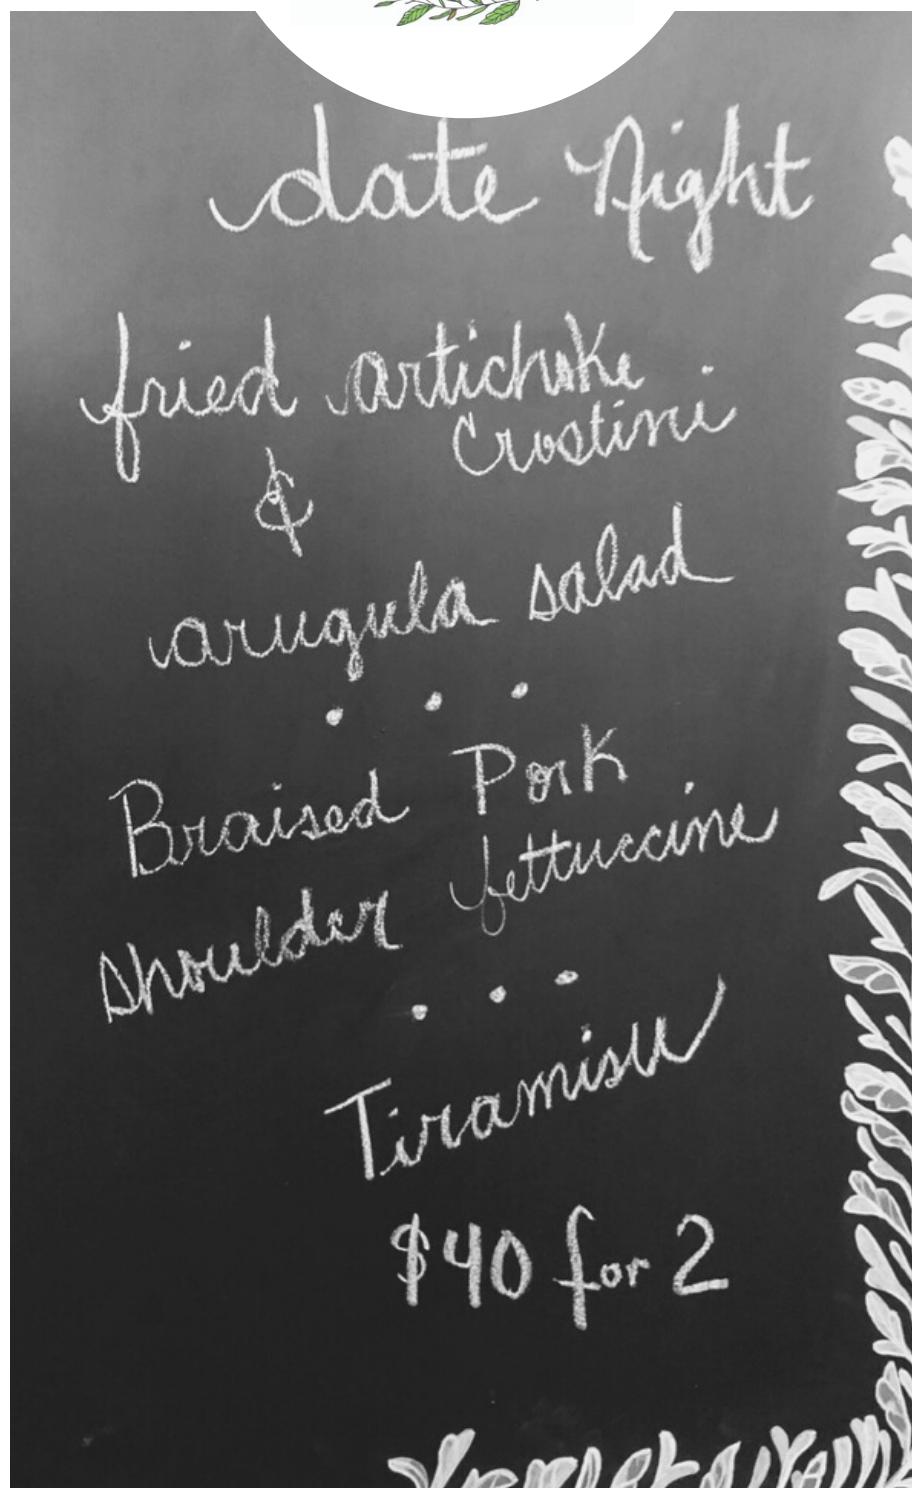 date Night
fried artichoke
Crostini
&
arugula salad
. . .
Braised Pork
shoulder fettuccine
. . .
Tiramisu
$40 for 2